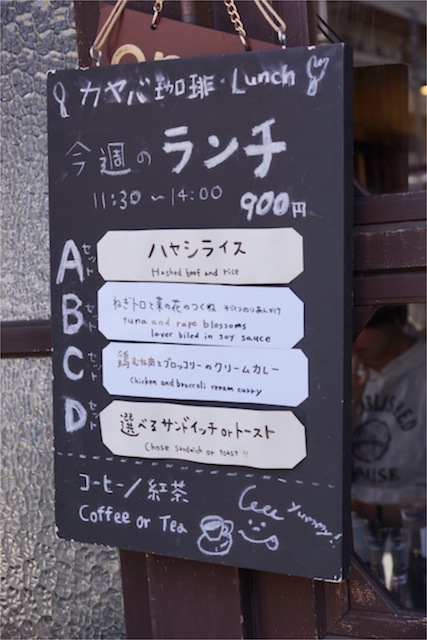 カヤバ珈琲・Lunch
今週のランチ
11:30～14:00 900円
Aセット
ハヤシライス
Hashed beef and rice
Bセット
ねぎトロと菜の花のつくね
tuna and rape blossoms
laver biled in soy sauce
Cセット
鶏むね肉とブロッコリーのクリームカレー
Chicken and broccoli cream curry
Dセット
選べるサンドイッチorトースト
Chose sandwich or toast!!
コーヒー/紅茶
Coffee or Tea
yummy!